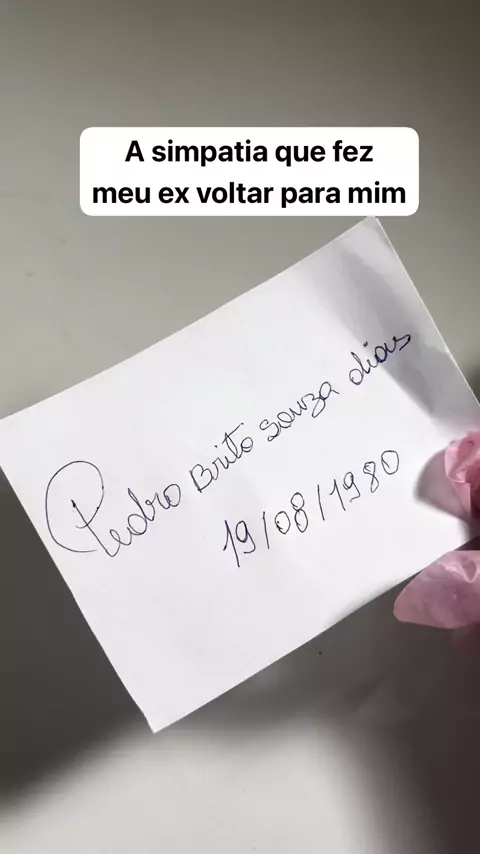 A simpatia que fez
meu ex voltar para mim
Pedro Brito Souza dias
19/08/1980